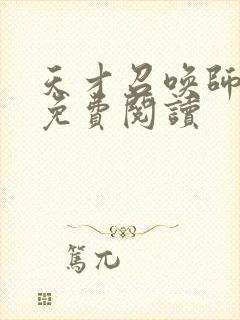 天才召喚師
免費閱讀
篤兀